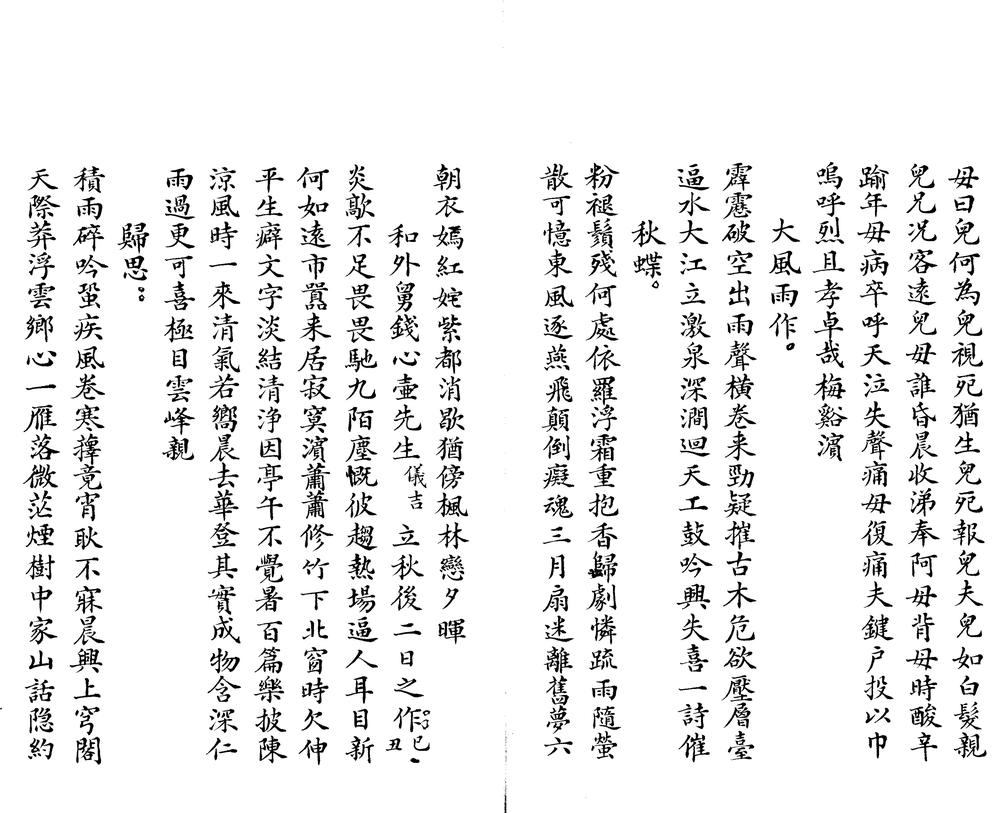 母曰兒何為兒視死猶生兒死報兒夫兒如白髮親
兒兄況客遠兒母誰昏晨收涕奉阿母背母時酸辛
踰年母病卒呼天泣失聲痛母復痛夫鍵户投以巾
嗚呼烈且孝卓哉梅谿濱
大風雨作。
霹靂破空出雨聲橫卷来勁疑摧古木危欲壓層臺
逼水大江立激泉深澗迴天工鼓吟興失喜一詩催
秋蝶。
粉褪鬚殘何處依羅浮霜重抱香歸劇憐疏雨隨螢
散可憶東風逐燕飛顛倒癡魂三月扇迷離舊夢六
朝衣嫣紅姹紫都消歇猶傍楓林戀夕暉
和外舅錢心壷先生儀吉立秋後二日之作己丑
炎歊不足畏畏馳九陌塵慨彼趨熱場逼人耳目新
何如遠市囂来居寂寞濱蕭蕭修竹下北窗時欠伸
平生癖文字淡結清淨因亭午不覺暑百篇樂披陳
涼風時一來清氣若嚮晨去華登其實成物含深仁
雨過更可喜極目雲峰親
歸思
積雨碎吟蛩疾風卷寒籜竟宵耿不寐晨興上穹閣
天際莽浮雲鄉心一雁落微茫煙樹中家山話隐約